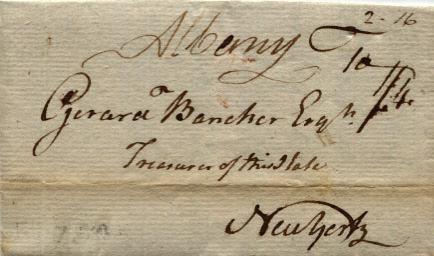 2-16
Albany To
Gerard Bancker Esqr.
Treasurer of this State
New York